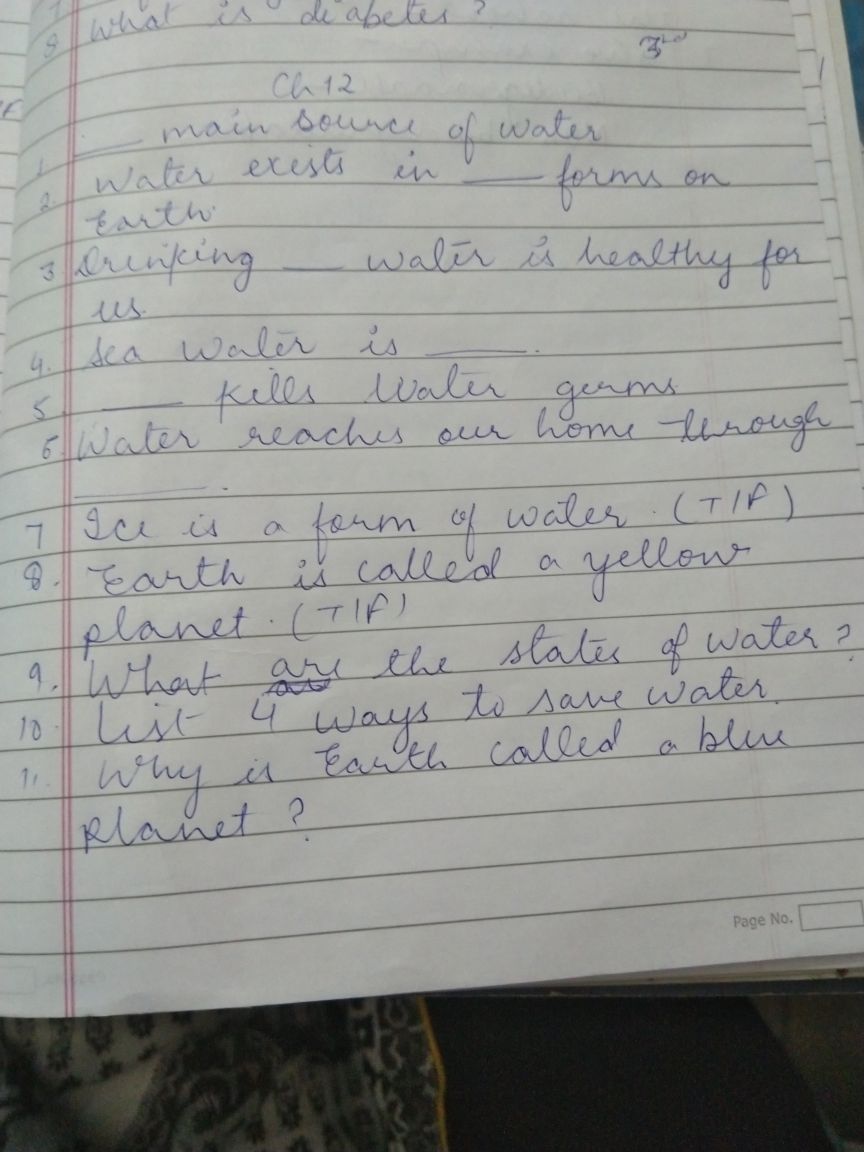 8 What is diabetes?
3rd
Ch 12
1. ___ main source of water
2. Water exists in ___ forms on
Earth.
3 Drinking ___ water is healthy for
us.
4. Sea water is ___.
5 ___ kills water germs
6. Water reaches our home through
___.
7 Ice is a form of water. (T/F)
8. Earth is called a yellow
planet. (T/F)
9. What are the states of water?
10. List 4 ways to save water.
11. Why is Earth called a blue
planet?
Page No.